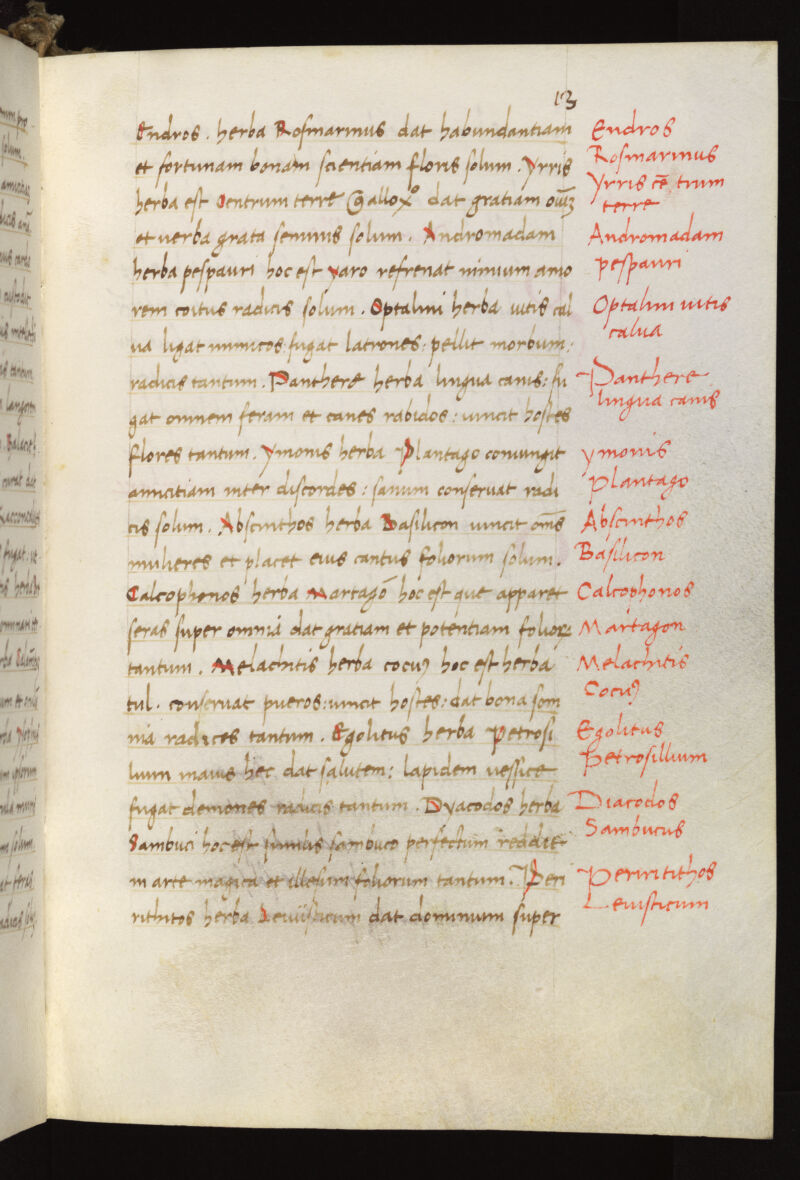 13
Endros . herba Rosmarinus dat habundantiam
et fortunam bonam scientiam floris solum . Yrris
herba est Centrum terre Gallox° dat gratiam
et uerba grata seminis solum . Andromadam
herba pespauri hoc est yaro refrenat nimium amo
rem coitus radicis solum . Optalini herba uitis cal
ua ligat inimicos : fugat latrones : pellit morbum :
radicis tantum . Panthere herba lingua canis : fu
gat omnem feram et canes rabidos : uincit hostes
flores tantum . Ymonis herba Plantago coniungit
amicitiam inter discordes : sanum conseruat radi
cis solum . Abscinthos herba Basilicon uincit om̄s
mulieres et placet eius cantus foliorum solum .
Calcophonos herba Martagō hoc est que apparet
feras super omnia dat gratiam et potentiam folioꝝ
tantum . Melachitis herba cocuꝯ hoc est herba
tul . conseruat pueros : uincit hostes : dat bona som
nia radices tantum . Egolitus herba Petrosi
lium maius hec dat salutem : lapidem uessice
fugat demones radicis tantum . Dyacodos herba
Sambuci hoc est similis sambuco perfectum reddit
in arte magica et illesum foliorum tantum . Peri
rithitos herba Leuiisticum dat dominum super
Endros
Rosmarinus
Yrris cē trum
terre
Andromadam
pespauri
Optalim uitis
calua
Panthere
lingua canis
ymonis
plantago
Abscinthos
Basilicon
Calcophonos
Martagon
Melachitis
Cocuꝯ
Egolitus
Petrosillium
Diacodos
Sambucus
Peririthithos
Leuisticum